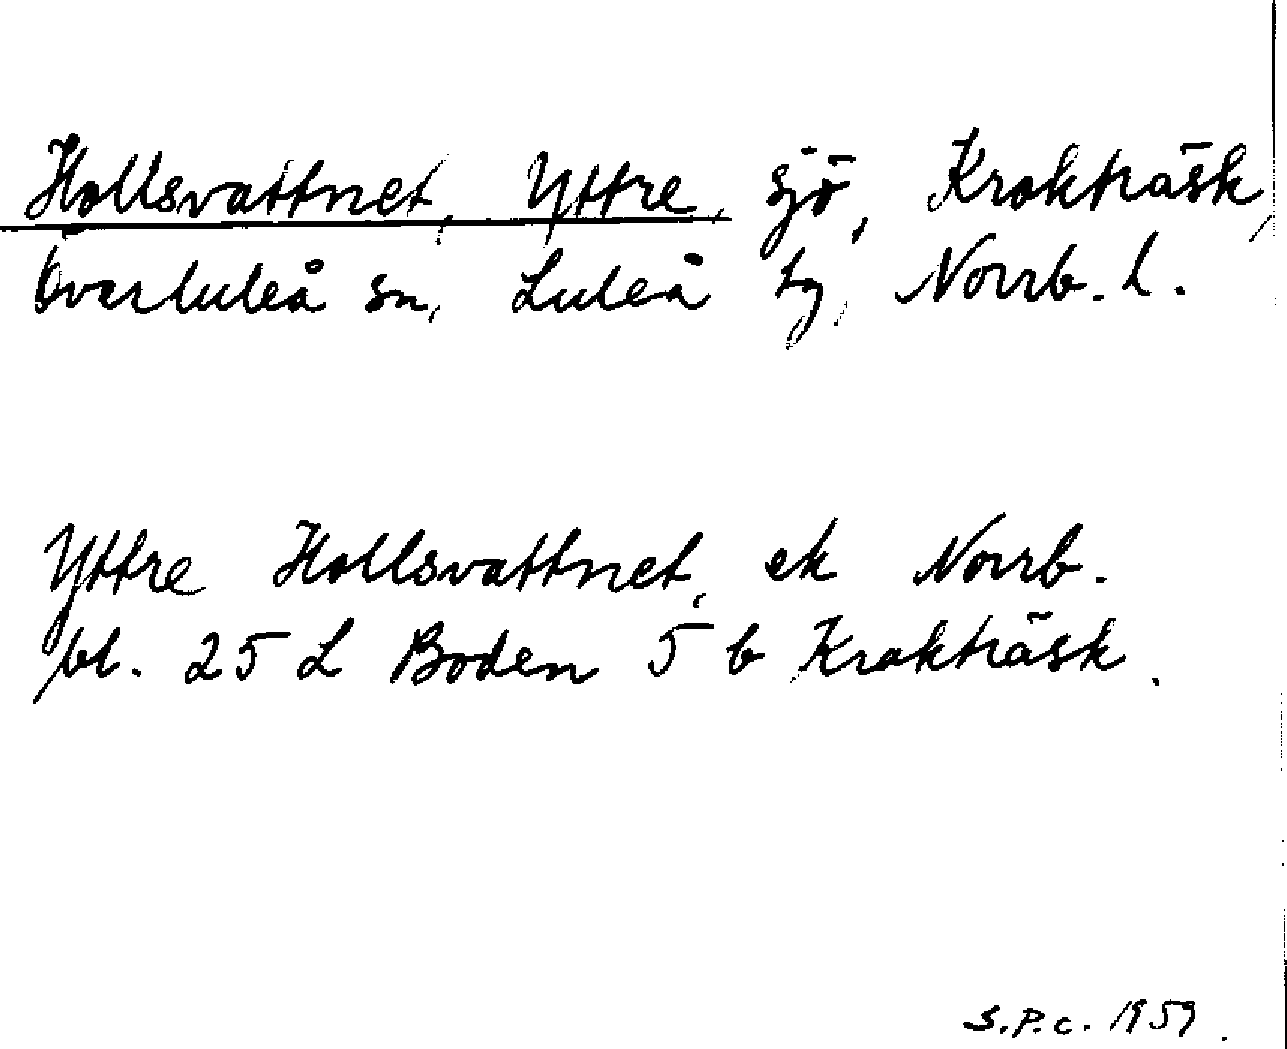 Hollsvattnet, Yttre, sjö, Krokträsk,
Överluleå sn, Luleå tg, Norrb. l.
Yttre Hollsvattnet, ek Norrb.
bl. 25 L Boden 5 b Krokträsk.
S.P.C. 1959.